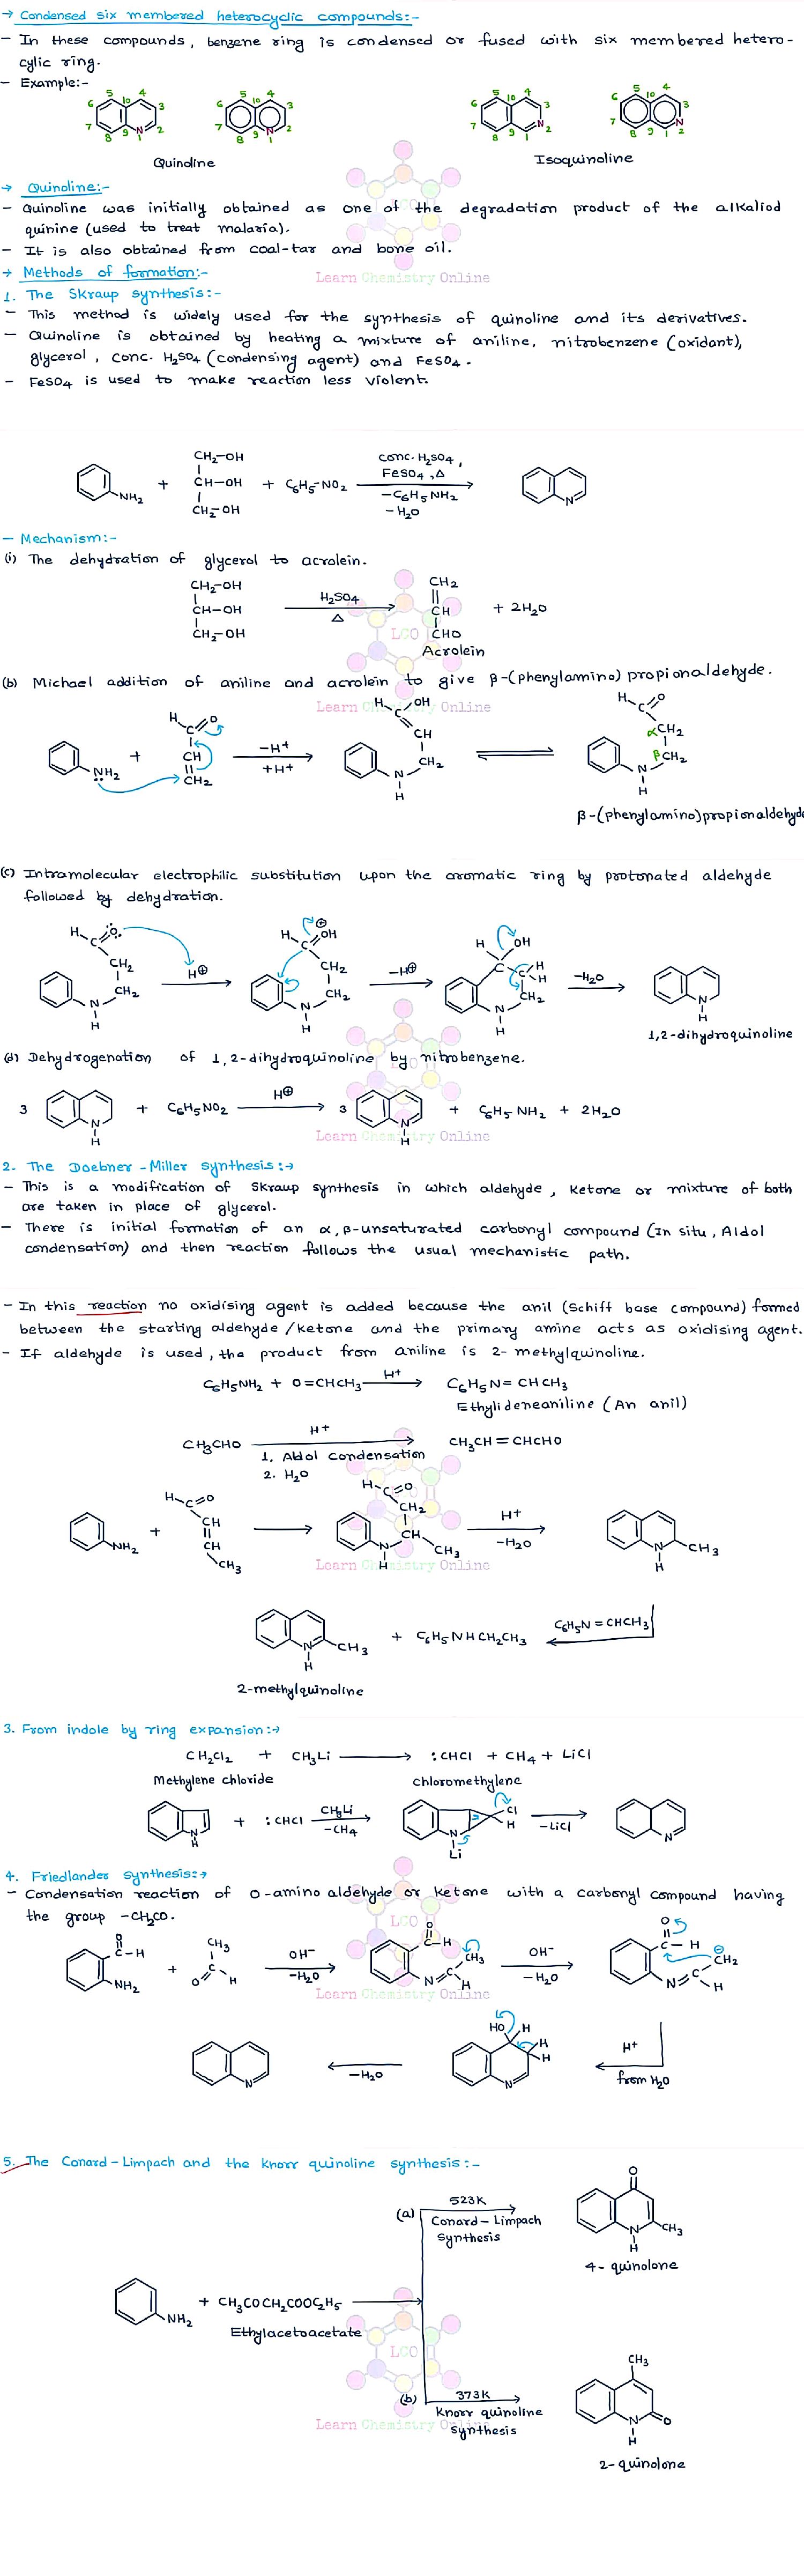 → Condensed six membered heterocyclic compounds:-
- In these compounds, benzene ring is condensed or fused with six membered hetero-
cylic ring.
- Example:-
5 4
6 10 3
7 9 N 2
8 1
5 4
6 10 3
7 9 N 2
8 1
5 4
6 10 3
7 9 N 2
8 1
5 4
6 10 3
7 9 N 2
8 1
Quinoline
Isoquinoline
→ Quinoline:-
- Quinoline was initially obtained as one of the degradation product of the alkaliod
quinine (used to treat malaria).
- It is also obtained from coal-tar and bone oil.
→ Methods of formation:-
Learn Chemistry Online
1. The Skraup synthesis:-
- This method is widely used for the synthesis of quinoline and its derivatives.
- Quinoline is obtained by heating a mixture of aniline, nitrobenzene (oxidant),
glycerol, conc. H2SO4 (condensing agent) and FeSO4.
- FeSO4 is used to make reaction less violent.
CH2-OH
CH-OH
CH2-OH
NH2 + + C6H5-NO2
conc. H2SO4,
FeSO4, Δ
-C6H5NH2
-H2O
N
- Mechanism:-
(i) The dehydration of glycerol to acrolein.
CH2-OH
CH-OH
CH2-OH
H2SO4
Δ
CH2
CH
CHO
+ 2H2O
LCO
Acrolein
(b) Michael addition of aniline and acrolein to give β-(phenylamino) propionaldehyde.
Learn Chemistry Online
NH2 +
H C O
CH
CH2
-H+
+H+
H C OH
CH
CH2
N
H
H C O
α CH2
β CH2
N
H
β-(phenylamino)propionaldehyde
(c) Intramolecular electrophilic substitution upon the aromatic ring by protonated aldehyde
followed by dehydration.
H C O
CH2
CH2
N
H
H⊕
H C OH ⊕
CH2
CH2
N
H
-H⊕
H OH
C C H
H
CH2
N
H
-H2O
N
H
1,2-dihydroquinoline
(d) Dehydrogenation of 1,2-dihydroquinoline by nitrobenzene.
3 N H + C6H5NO2 H⊕ 3 N H + C6H5NH2 + 2H2O
Learn Chemistry Online
2. The Doebner-Miller synthesis:→
- This is a modification of Skraup synthesis in which aldehyde, ketone or mixture of both
are taken in place of glycerol.
- There is initial formation of an α,β-unsaturated carbonyl compound (In situ, Aldol
condensation) and then reaction follows the usual mechanistic path.
- In this reaction no oxidising agent is added because the anil (Schiff base compound) formed
between the starting aldehyde/ketone and the primary amine acts as oxidising agent.
- If aldehyde is used, the product from aniline is 2-methylquinoline.
C6H5NH2 + O=CHCH3 H+ C6H5N=CHCH3
Ethylideneaniline (An anil)
CH3CHO H+ CH3CH=CHCHO
1. Aldol condensation
2. H2O
NH2 +
H C=O
CH
CH
CH3
H C=O
CH2
CH
CH3
N
H
H+
-H2O
N CH3
H
Learn Chemistry Online
N CH3
H
+ C6H5NHCH2CH3 C6H5N=CHCH3
2-methylquinoline
3. From indole by ring expansion:→
CH2Cl2 + CH3Li → :CHCl + CH4 + LiCl
Methylene chloride Chloromethylene
N H + :CHCl
CH3Li
-CH4
Cl
H
N
Li
-LiCl
N
4. Friedlander synthesis:→
- Condensation reaction of o-amino aldehyde or ketone with a carbonyl compound having
the group -CH2CO.
LCO
O
C-H
NH2
+
CH3
C
O H
OH-
-H2O
O
C-H
CH3
N=C
H
OH-
-H2O
O
C-H
⊖
CH2
N=C
H
Learn Chemistry Online
H+
from H2O
HO H
H
H
N
-H2O
N
5. The Conard-Limpach and the knorr quinoline synthesis:-
(a) 523K
Conard-Limpach
Synthesis
O
N CH3
H
4-quinolone
NH2 + CH3COCH2COOC2H5
Ethylacetoacetate
LCO
(b) 373K
Knorr quinoline
Synthesis
Learn Chemistry Online
CH3
N O
H
2-quinolone